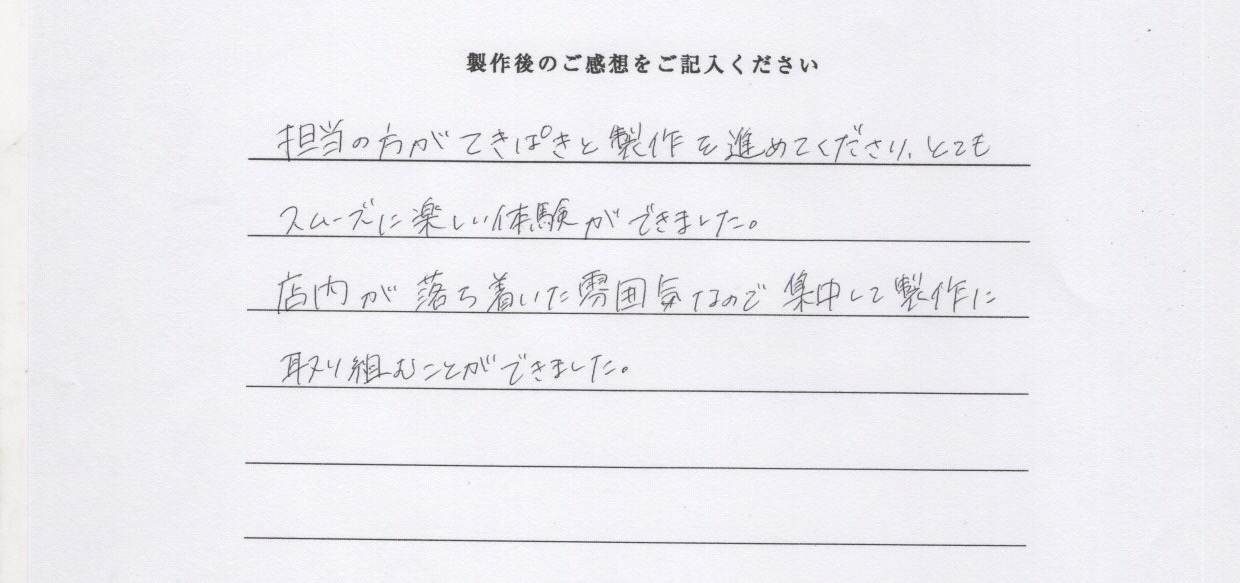 製作後のご感想をご記入ください
担当の方がてきぱきと製作を進めてくださり、とても
スムーズに楽しい体験ができました。
店内が落ち着いた雰囲気なので集中して製作に
取り組むことができました。